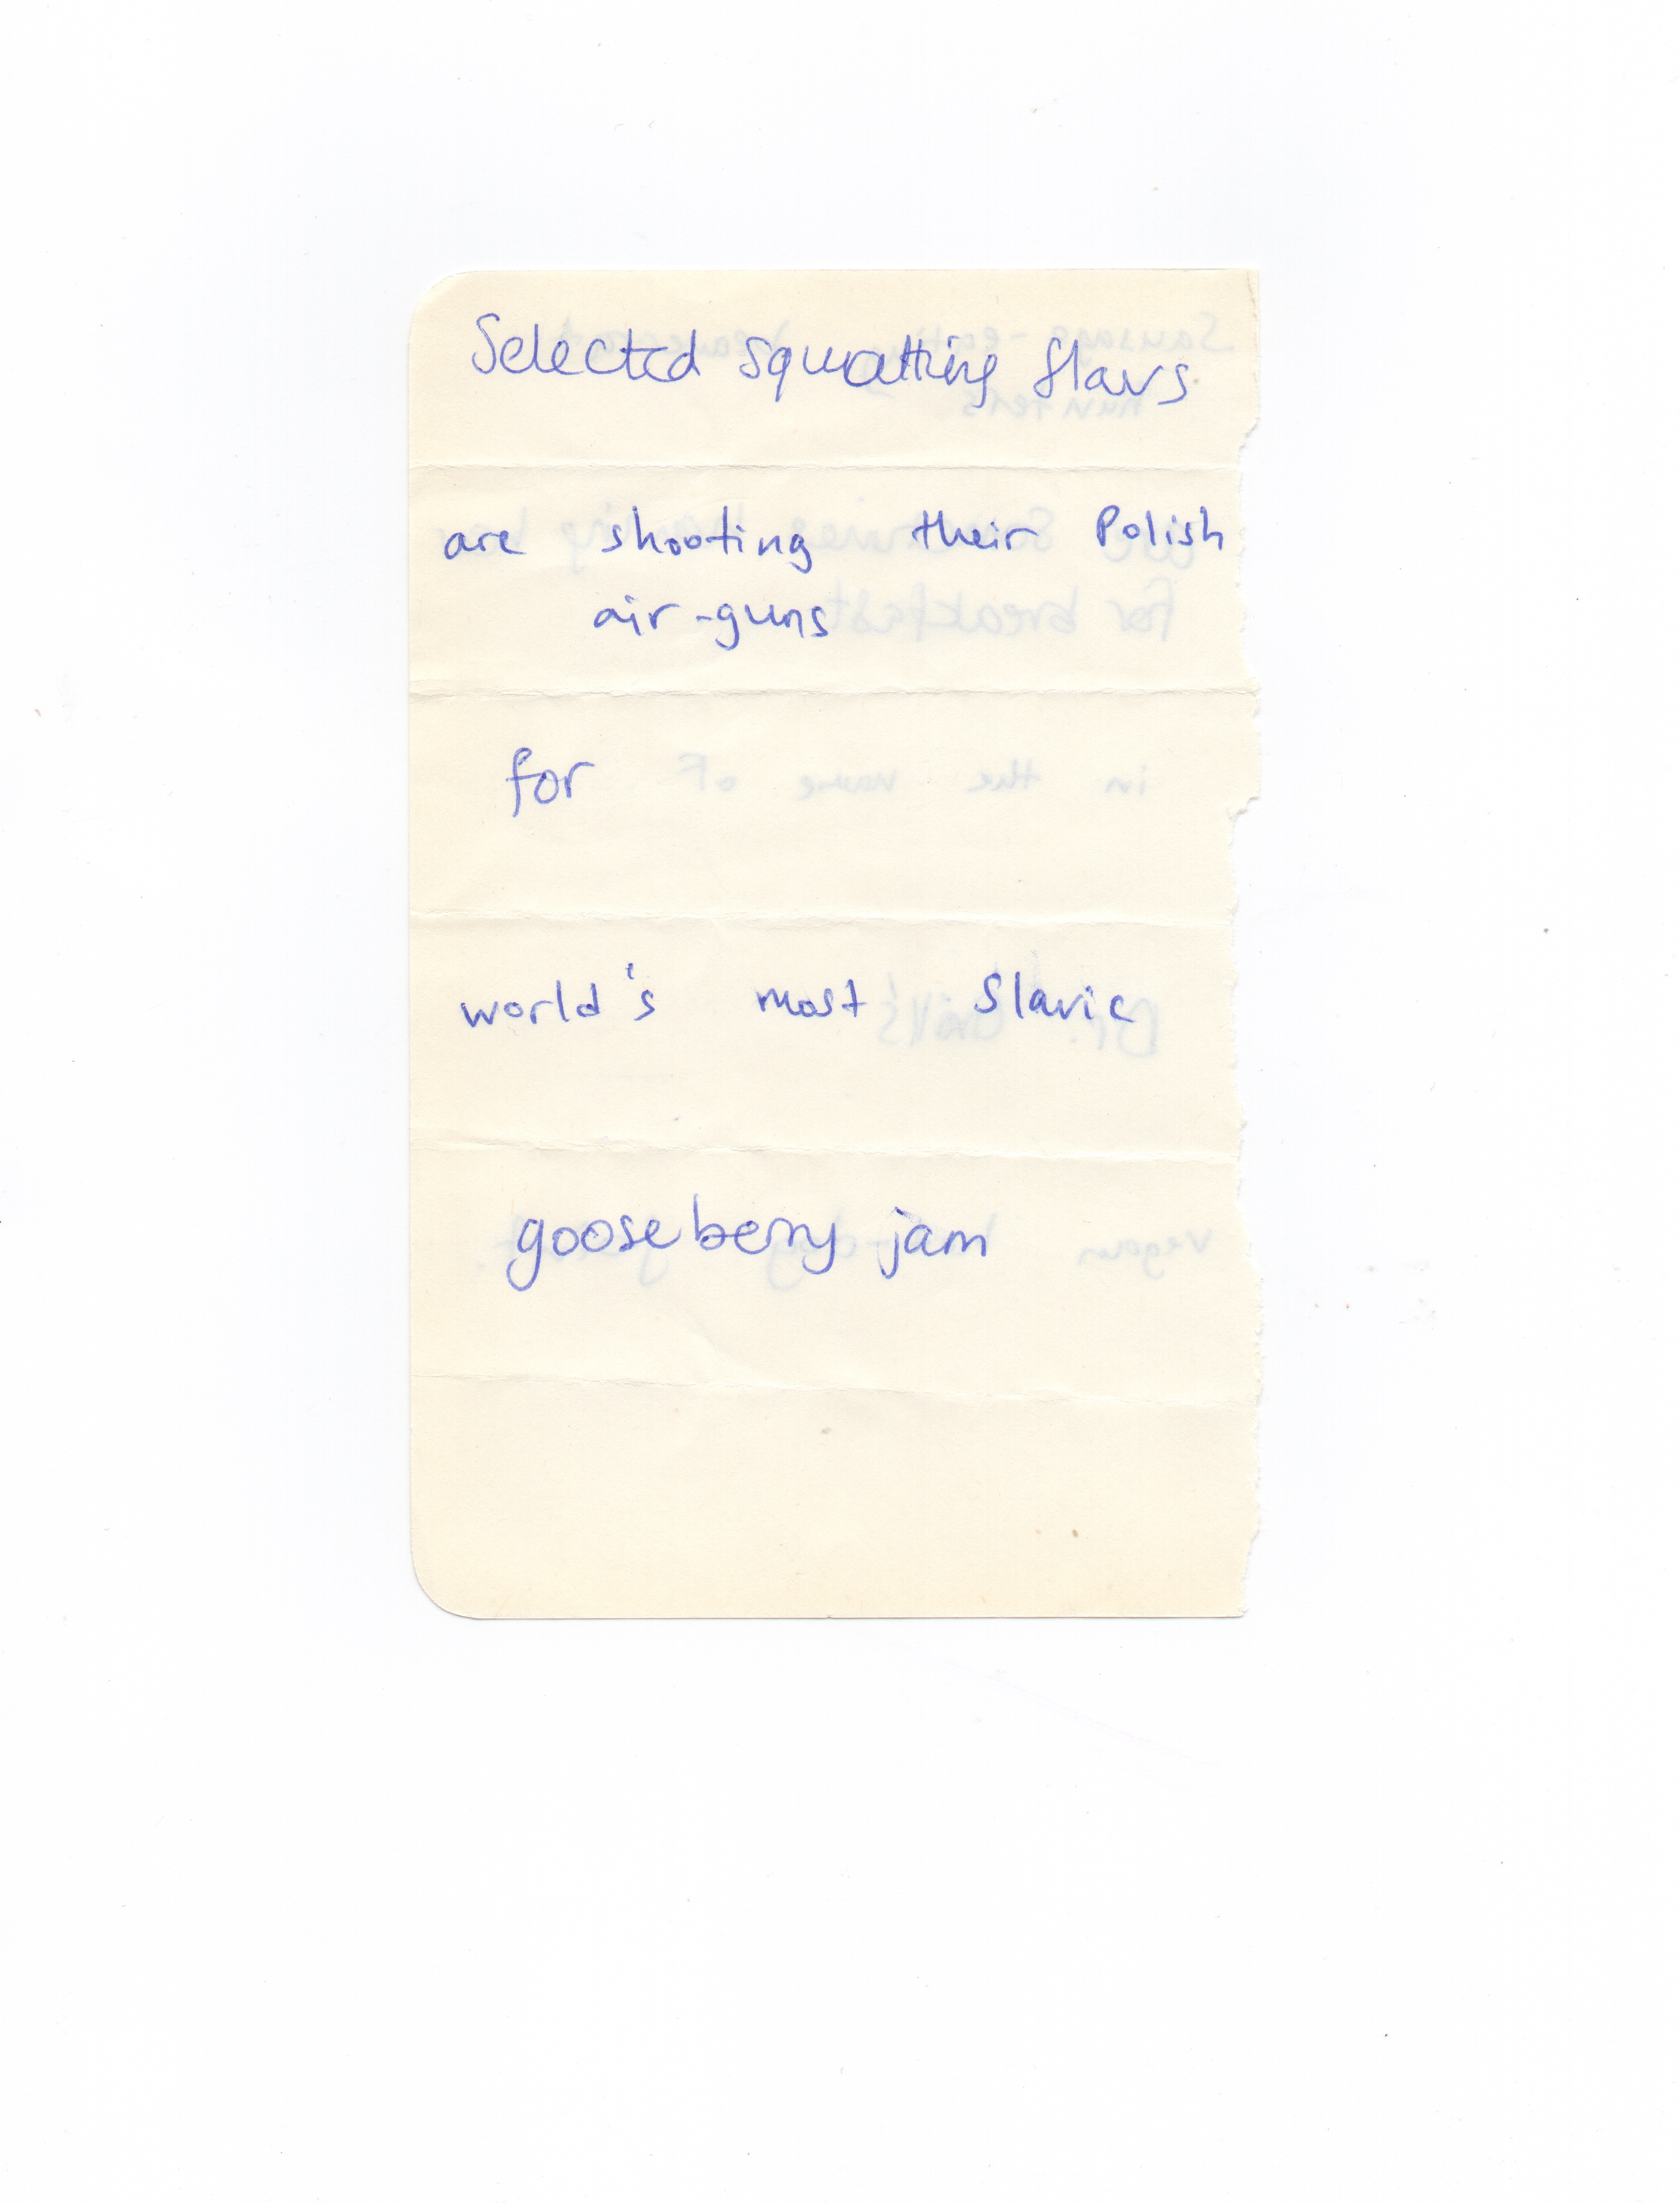 Selected squatting Slavs
are shooting their Polish
air-guns
for
world's most Slavic
gooseberry jam